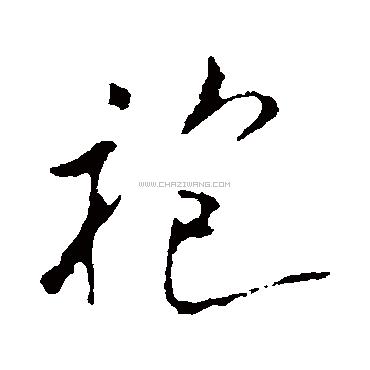 袍
WWW.CHAZIWANG.COM